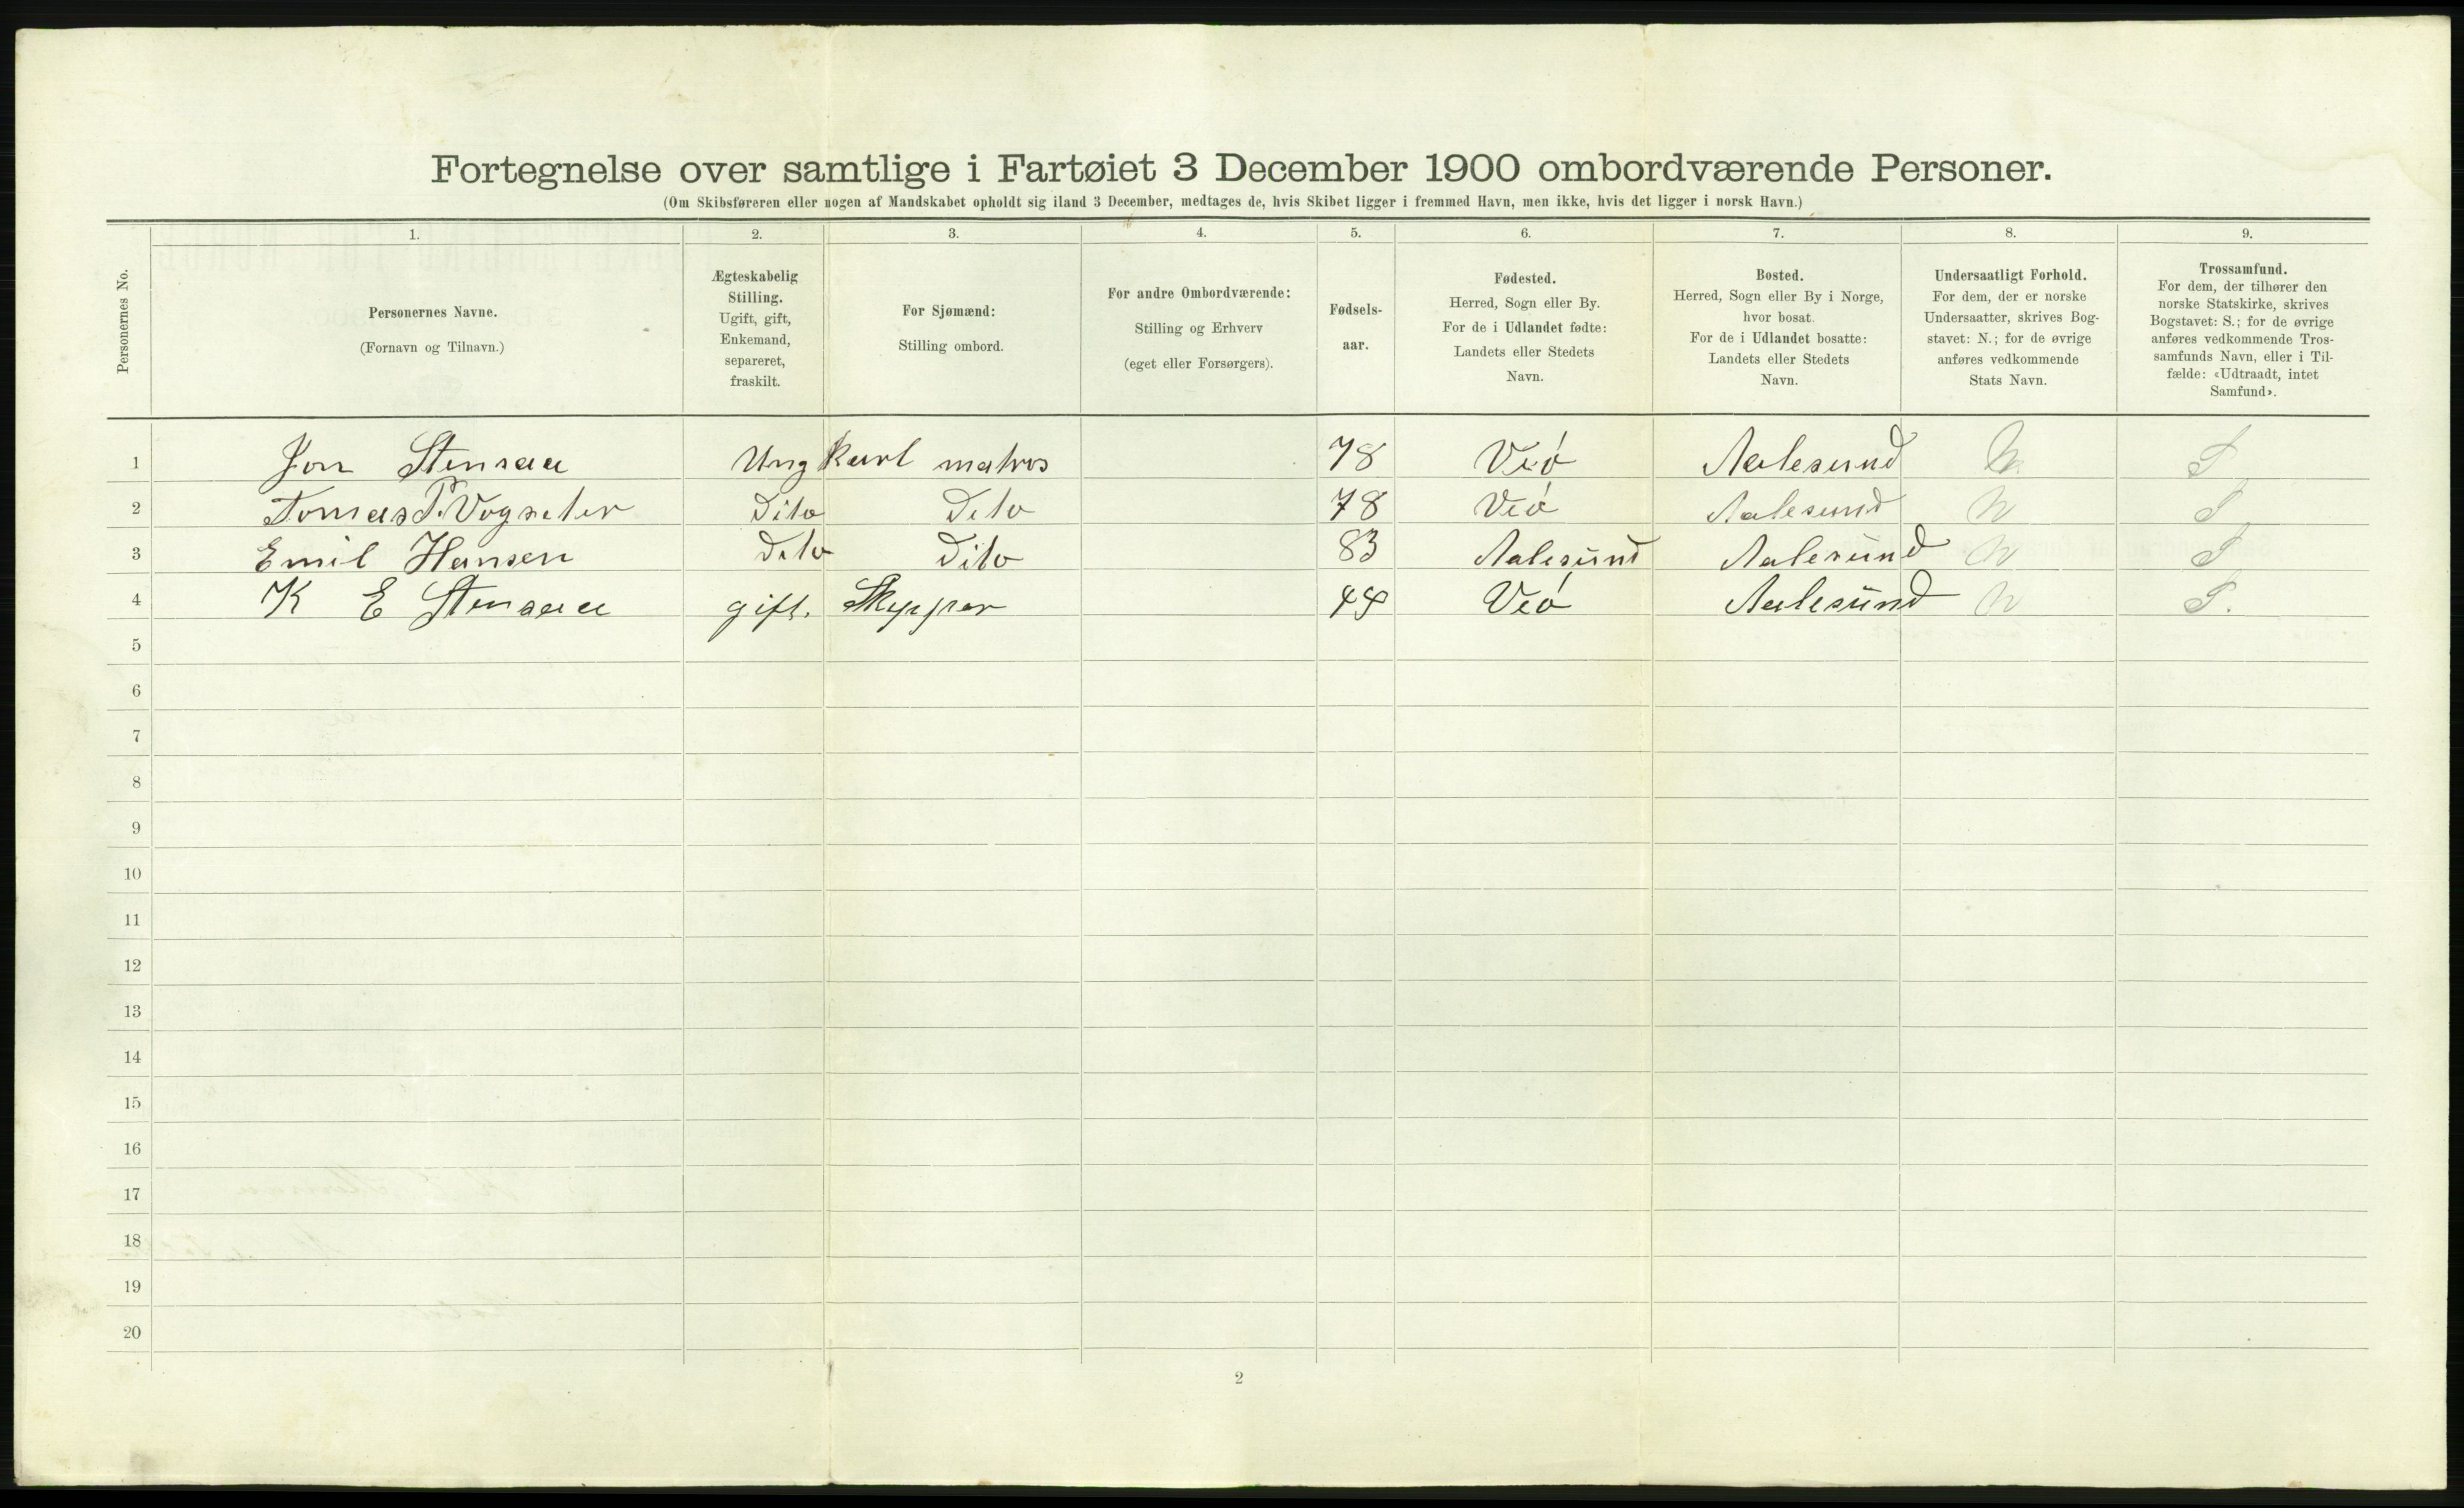 Fortegnelse over samtlige i Fartøiet 3 December 1900 ombordværende Personer.
(Om Skibsføreren eller nogen af Mandskabet opholdt sig iland 3 December, medtages de, hvis Skibet ligger i fremmed Havn, men ikke, hvis det ligger i norsk Havn.)
Personernes No.
1.
Personernes Navne.
(Fornavn og Tilnavn.)
2.
Ægteskabelig
Stilling.
Ugift, gift,
Enkemand,
separeret,
fraskilt.
3.
For Sjømænd:
Stilling ombord.
4.
For andre Ombordværende:
Stilling og Erhverv
(eget eller Forsørgers).
5.
Fødsels-
aar.
6.
Fødested.
Herred, Sogn eller By.
For de i Udlandet fødte:
Landets eller Stedets
Navn.
7.
Bosted.
Herred, Sogn eller By i Norge,
hvor bosat.
For de i Udlandet bosatte:
Landets eller Stedets
Navn.
8.
Undersaatligt Forhold.
For dem, der er norske
Undersaatter, skrives Bog-
stavet: N.; for de øvrige
anføres vedkommende
Stats Navn.
9.
Trossamfund.
For dem, der tilhører den
norske Statskirke, skrives
Bogstavet: S.; for de øvrige
anføres vedkommende Tros-
samfunds Navn, eller i Til-
fælde: «Udtraadt, intet
Samfund».
1 Jon Stensaa Ung karl matros 78 Veø Aalesund N. S
2 Tomas P. Vogseter Dito Dito 78 Veø Aalesund N S
3 Emil Hansen Dito Dito 83 Aalesund Aalesund N S
4 K E Stensaa gift. Skipper 44 Veø Aalesund N S.
5
6
7
8
9
10
11
12
13
14
15
16
17
18
19
20
2